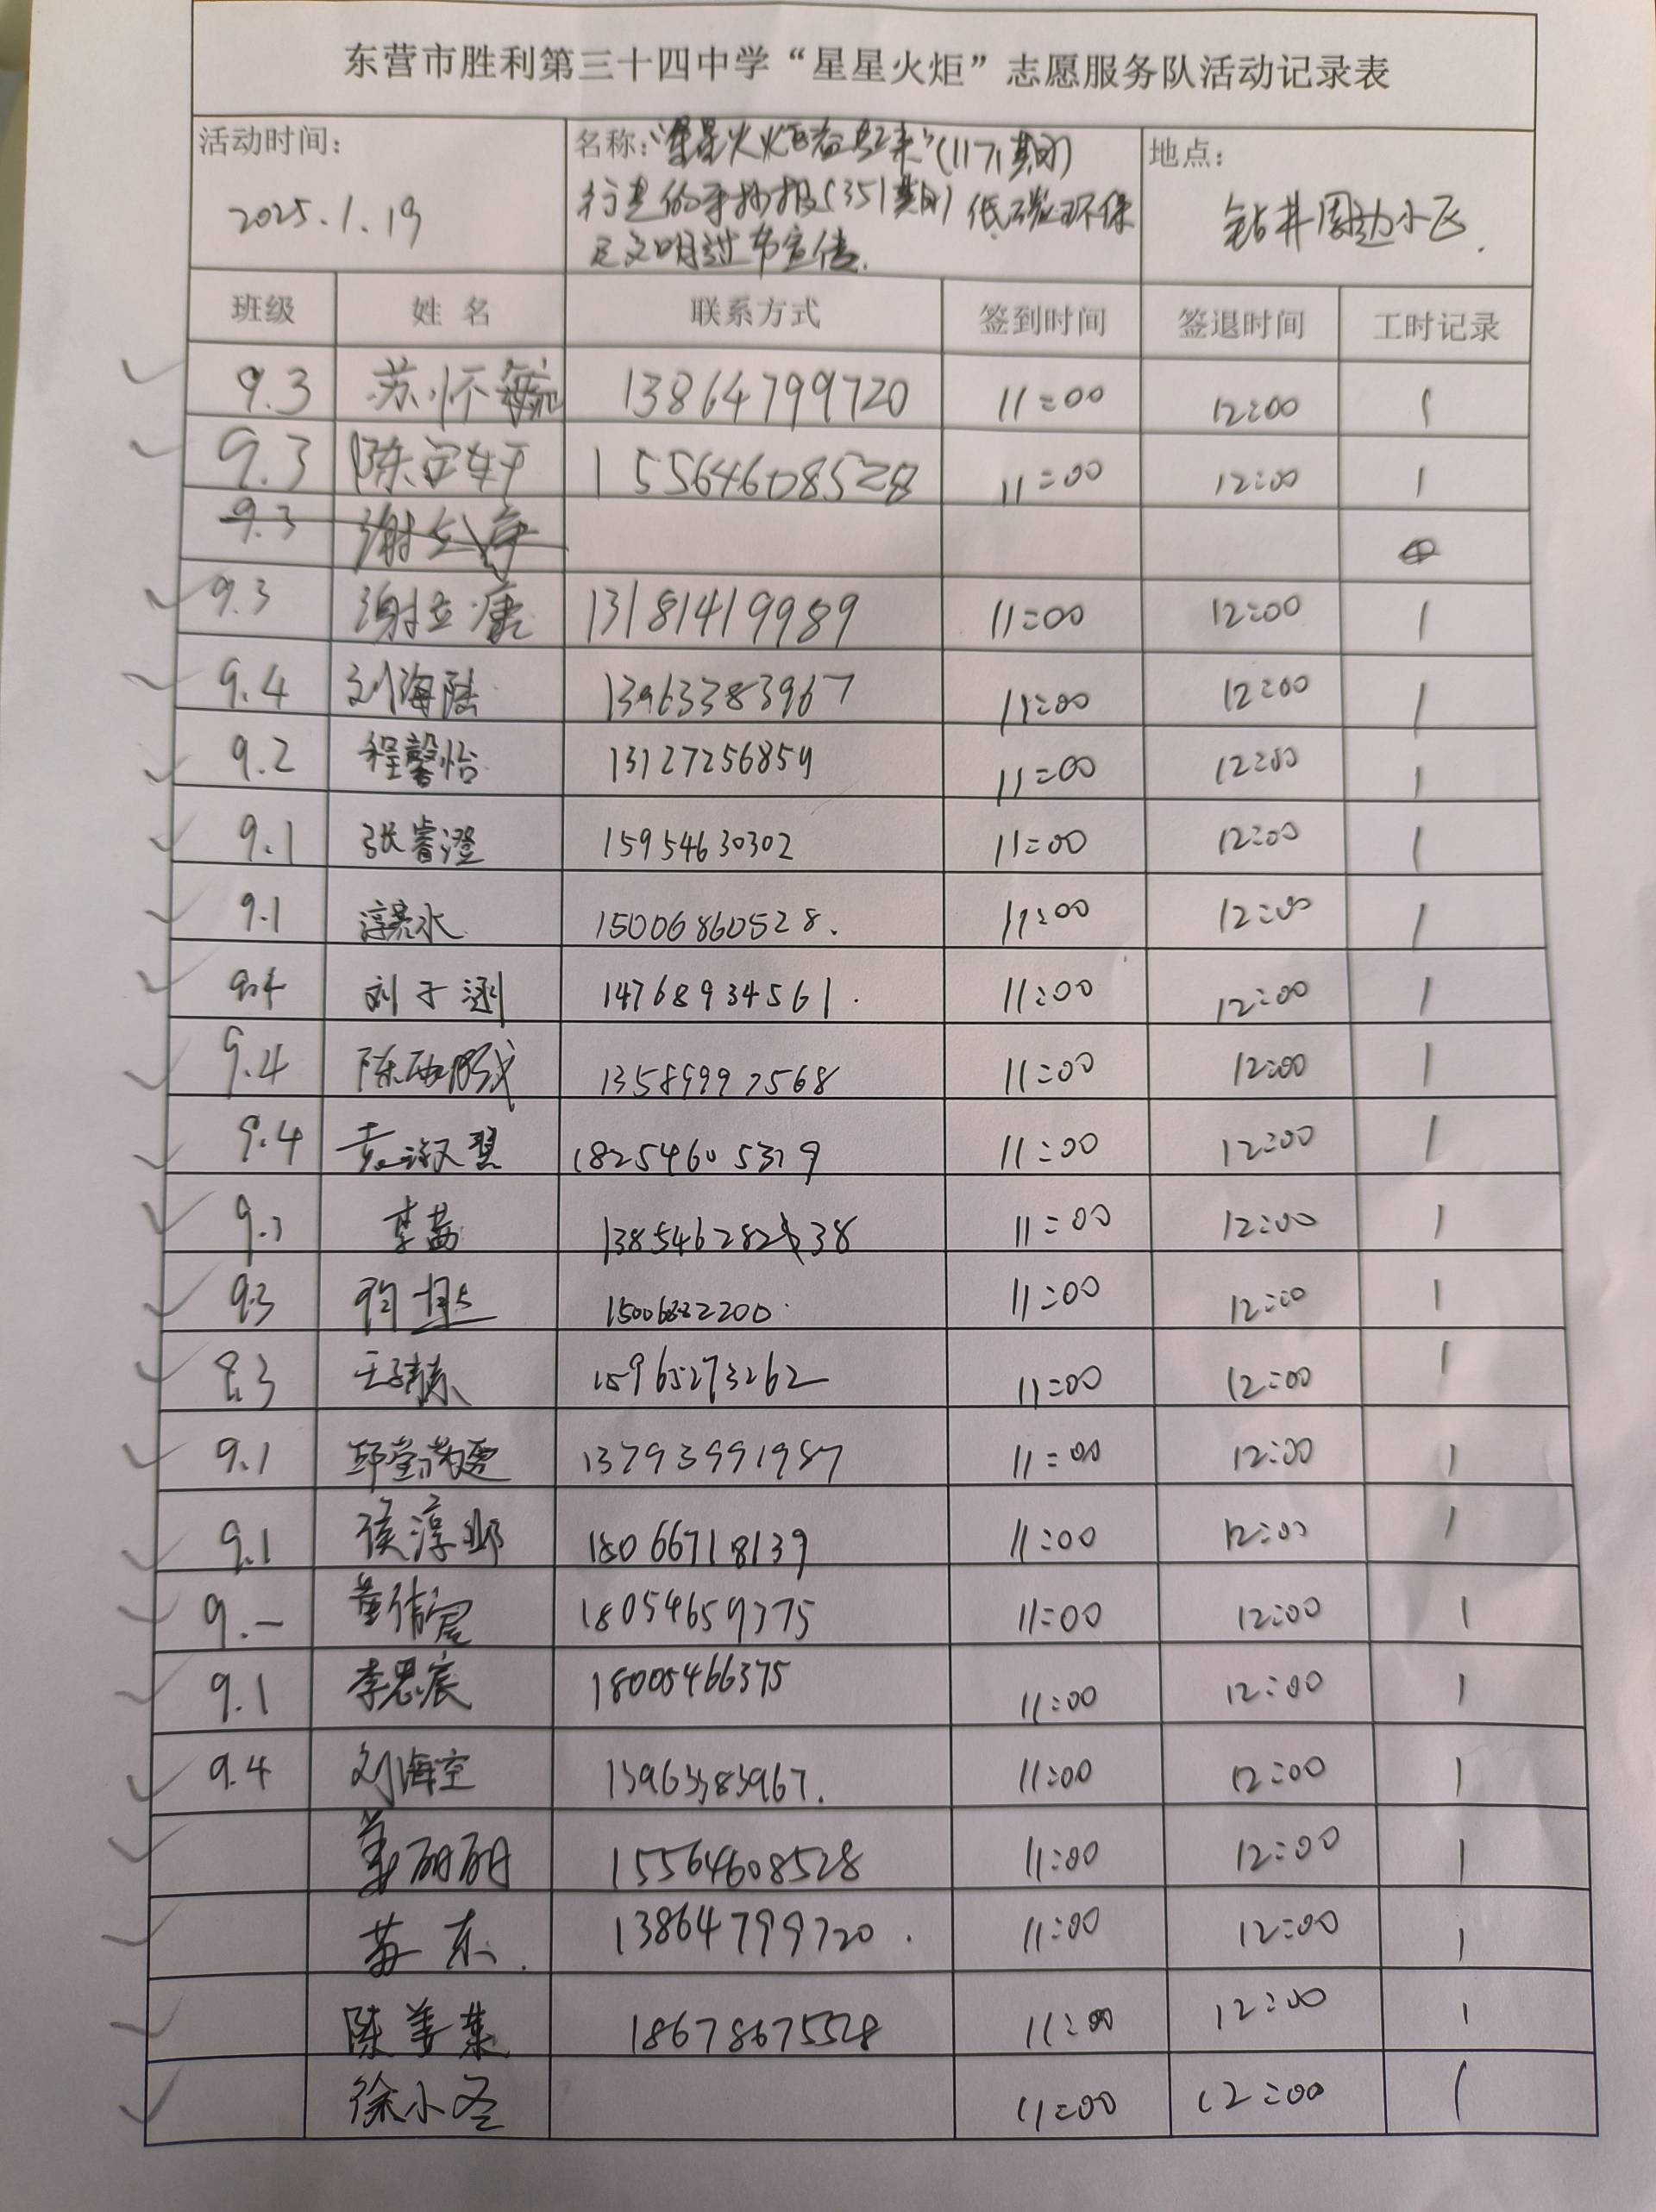 东营市胜利第三十四中学“星星火炬”志愿服务队活动记录表
活动时间： 名称：“星星火炬 (1171期) 地点：
2025.1.19 行走的手抄报(351期) 低碳环保 钻井周边小区.
文明过节宣传.
班级 姓 名 联系方式 签到时间 签退时间 工时记录
9.3 苏怀 13864799720 11:00 12:00 1
9.3 陈 轩 15564608528 11:00 12:00 1
9.3 谢
9.3 谢立康 13181419989 11:00 12:00 1
9.4 刘海陆 13963383967 11:00 12:00 1
9.2 程馨怡 13127256859 11:00 12:00 1
9.1 张睿澄 15954630302 11:00 12:00 1
9.1 15006860528. 11:00 12:00 1
9.4 刘子涵 14768934561. 11:00 12:00 1
9.4 陈 13589997568 11:00 12:00 1
9.4 11:00 12:00 1
李茜 11:00 12:00 1
9.3 11:00 12:00 1
8.3 王 15965273262 11:00 12:00 1
9.1 13793991987 11:00 12:00 1
9.1 侯淳 18066718139 11:00 12:00 1
9.一 董倩 18054659375 11:00 12:00 1
9.1 李思宸 18005466375 11:00 12:00 1
9.4 刘海空 13963383967. 11:00 12:00 1
姜丽丽 15564608528 11:00 12:00 1
苏东. 13864799720. 11:00 12:00 1
陈姜 18678675528 11:00 12:00 1
徐小冬 11:00 12:00 1